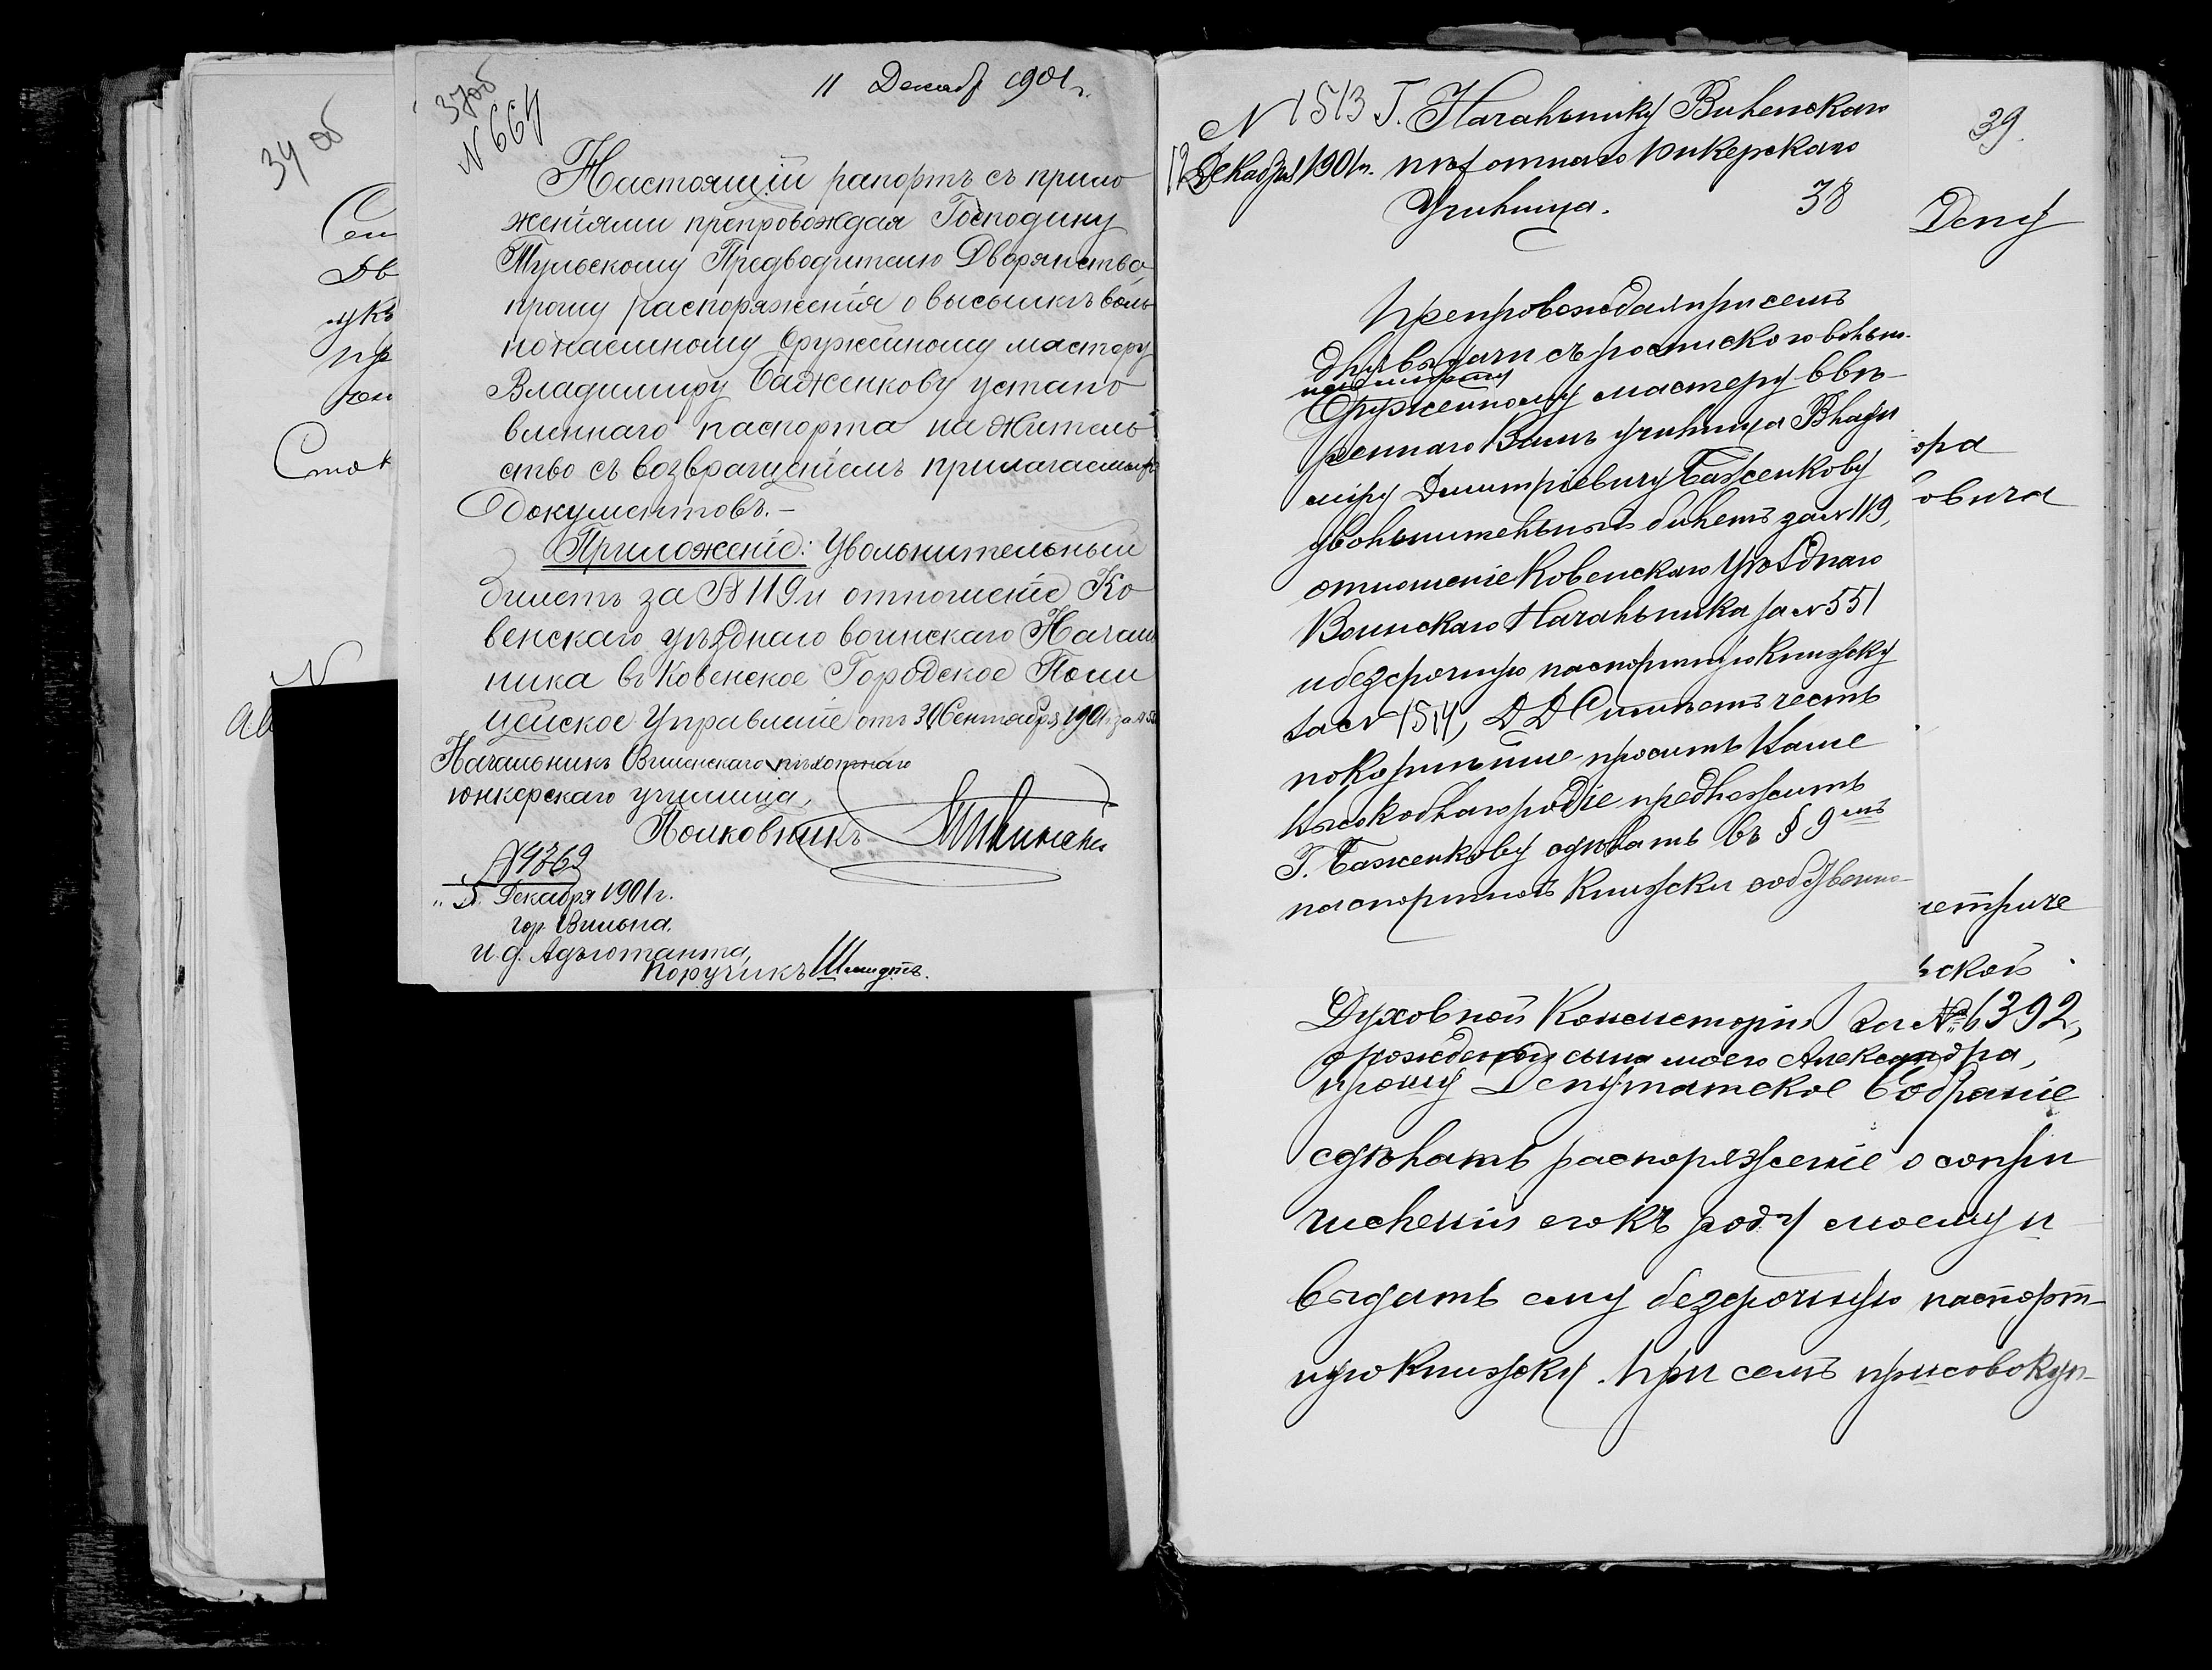 34 об
Сем
Дв
укъ
пр
чен
Сток
N
ав
37об
N 664
11 Декабр 1901 г.
Настоящій рапортъ съ прило
женіями препровождая Господину
Тульскому Предводителю Дворянства,
прошу распоряженія о высылкѣ воль
нонаемному Оружейному мастеру
Владиміру Баженкову устано
вленнаго паспорта на житель
ство съ возвращеніемъ прилагаемыхъ
документовъ.-
Приложеніе: Увольнительный
билетъ за № 119 и отношеніе Ко
венскаго уѣзднаго воинскаго Началь
ника въ Ковенское Городское Поли
цейское Управленіе отъ Сентября 1901 г. за №
Начальникъ Виленскаго пѣхотнаго
юнкерскаго училища,
Полковникъ
"5" Декабря 1901 г.
гор. Вильна.
И. д. Адъютанта,
Поручикъ Шмидтъ.
N 1513 Г. Начальнику Виленскаго
12 Декабря 1901 г. пѣхотнаго Юнкерскаго
Училища.
38
Препровождая при семъ
для выдачи съ роспискою вольно-
наемному
Оружейному мастеру ввѣ-
реннаго Вамъ училища Влади
міру Дмитріевичу Баженкову
увольнительный билетъ за N 119,
отношеніе Ковенскаго Уѣзднаго
Воинскаго Начальника за N 551
и безсрочную паспортную книжку
за N 1514, Д Д С имѣетъ честь
покорнѣйше просить Ваше
Высокоблагородіе предложить
Г. Баженкову сдѣлать въ § 9 мъ
паспортной книжки собственно-
39.
Депу
ора
овича
етриче
ской
Духовной Консисторіи за № 6392,
о рожденіи сына моего Александра,
прошу Депутатское Собраніе
сдѣлать распоряженіе о сопри
численіи его къ роду моему и
выдать ему безсрочную паспорт-
ную книжку. При семъ присовокуп-